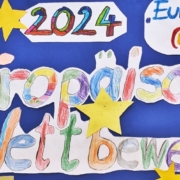 2024 "Eu
uropäisc
Wettbewe